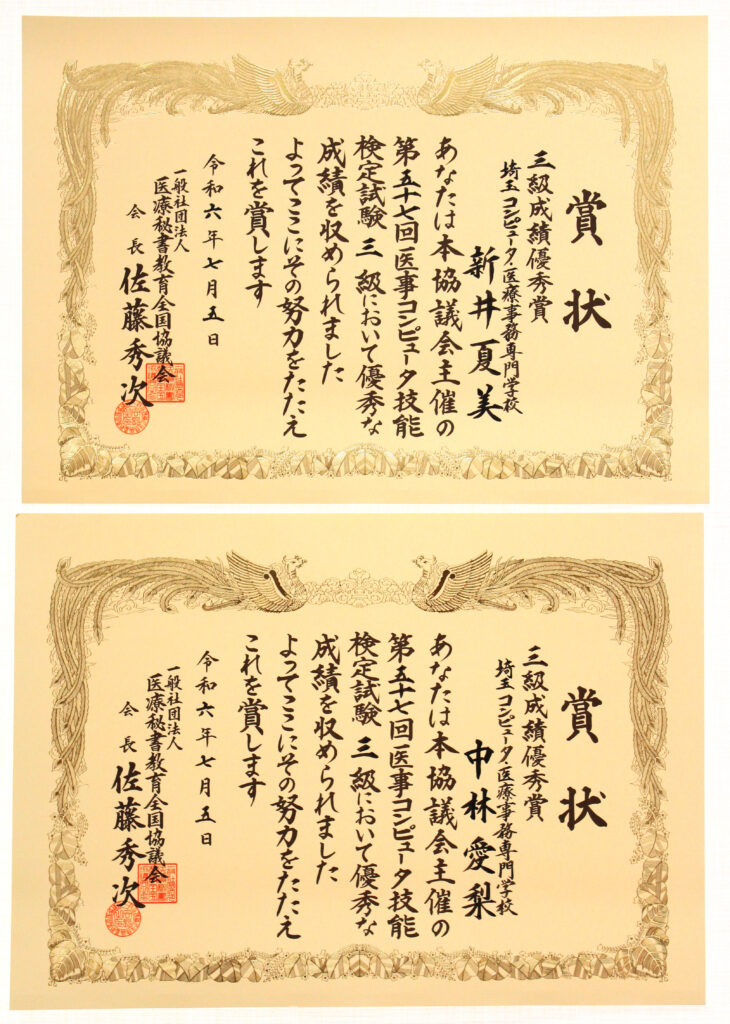 賞状
三級成績優秀賞
埼玉コンピュータ・医療事務専門学校
新井夏美
あなたは本協議会主催の
第五十七回医事コンピュータ技能
検定試験 三級において優秀な
成績を収められました
よってここにその努力をたたえ
これを賞します
令和六年七月五日
一般社団法人
医療秘書教育全国協議会
会長 佐藤秀次
賞状
三級成績優秀賞
埼玉コンピュータ・医療事務専門学校
中林愛梨
あなたは本協議会主催の
第五十七回医事コンピュータ技能
検定試験 三級において優秀な
成績を収められました
よってここにその努力をたたえ
これを賞します
令和六年七月五日
一般社団法人
医療秘書教育全国協議会
会長 佐藤秀次